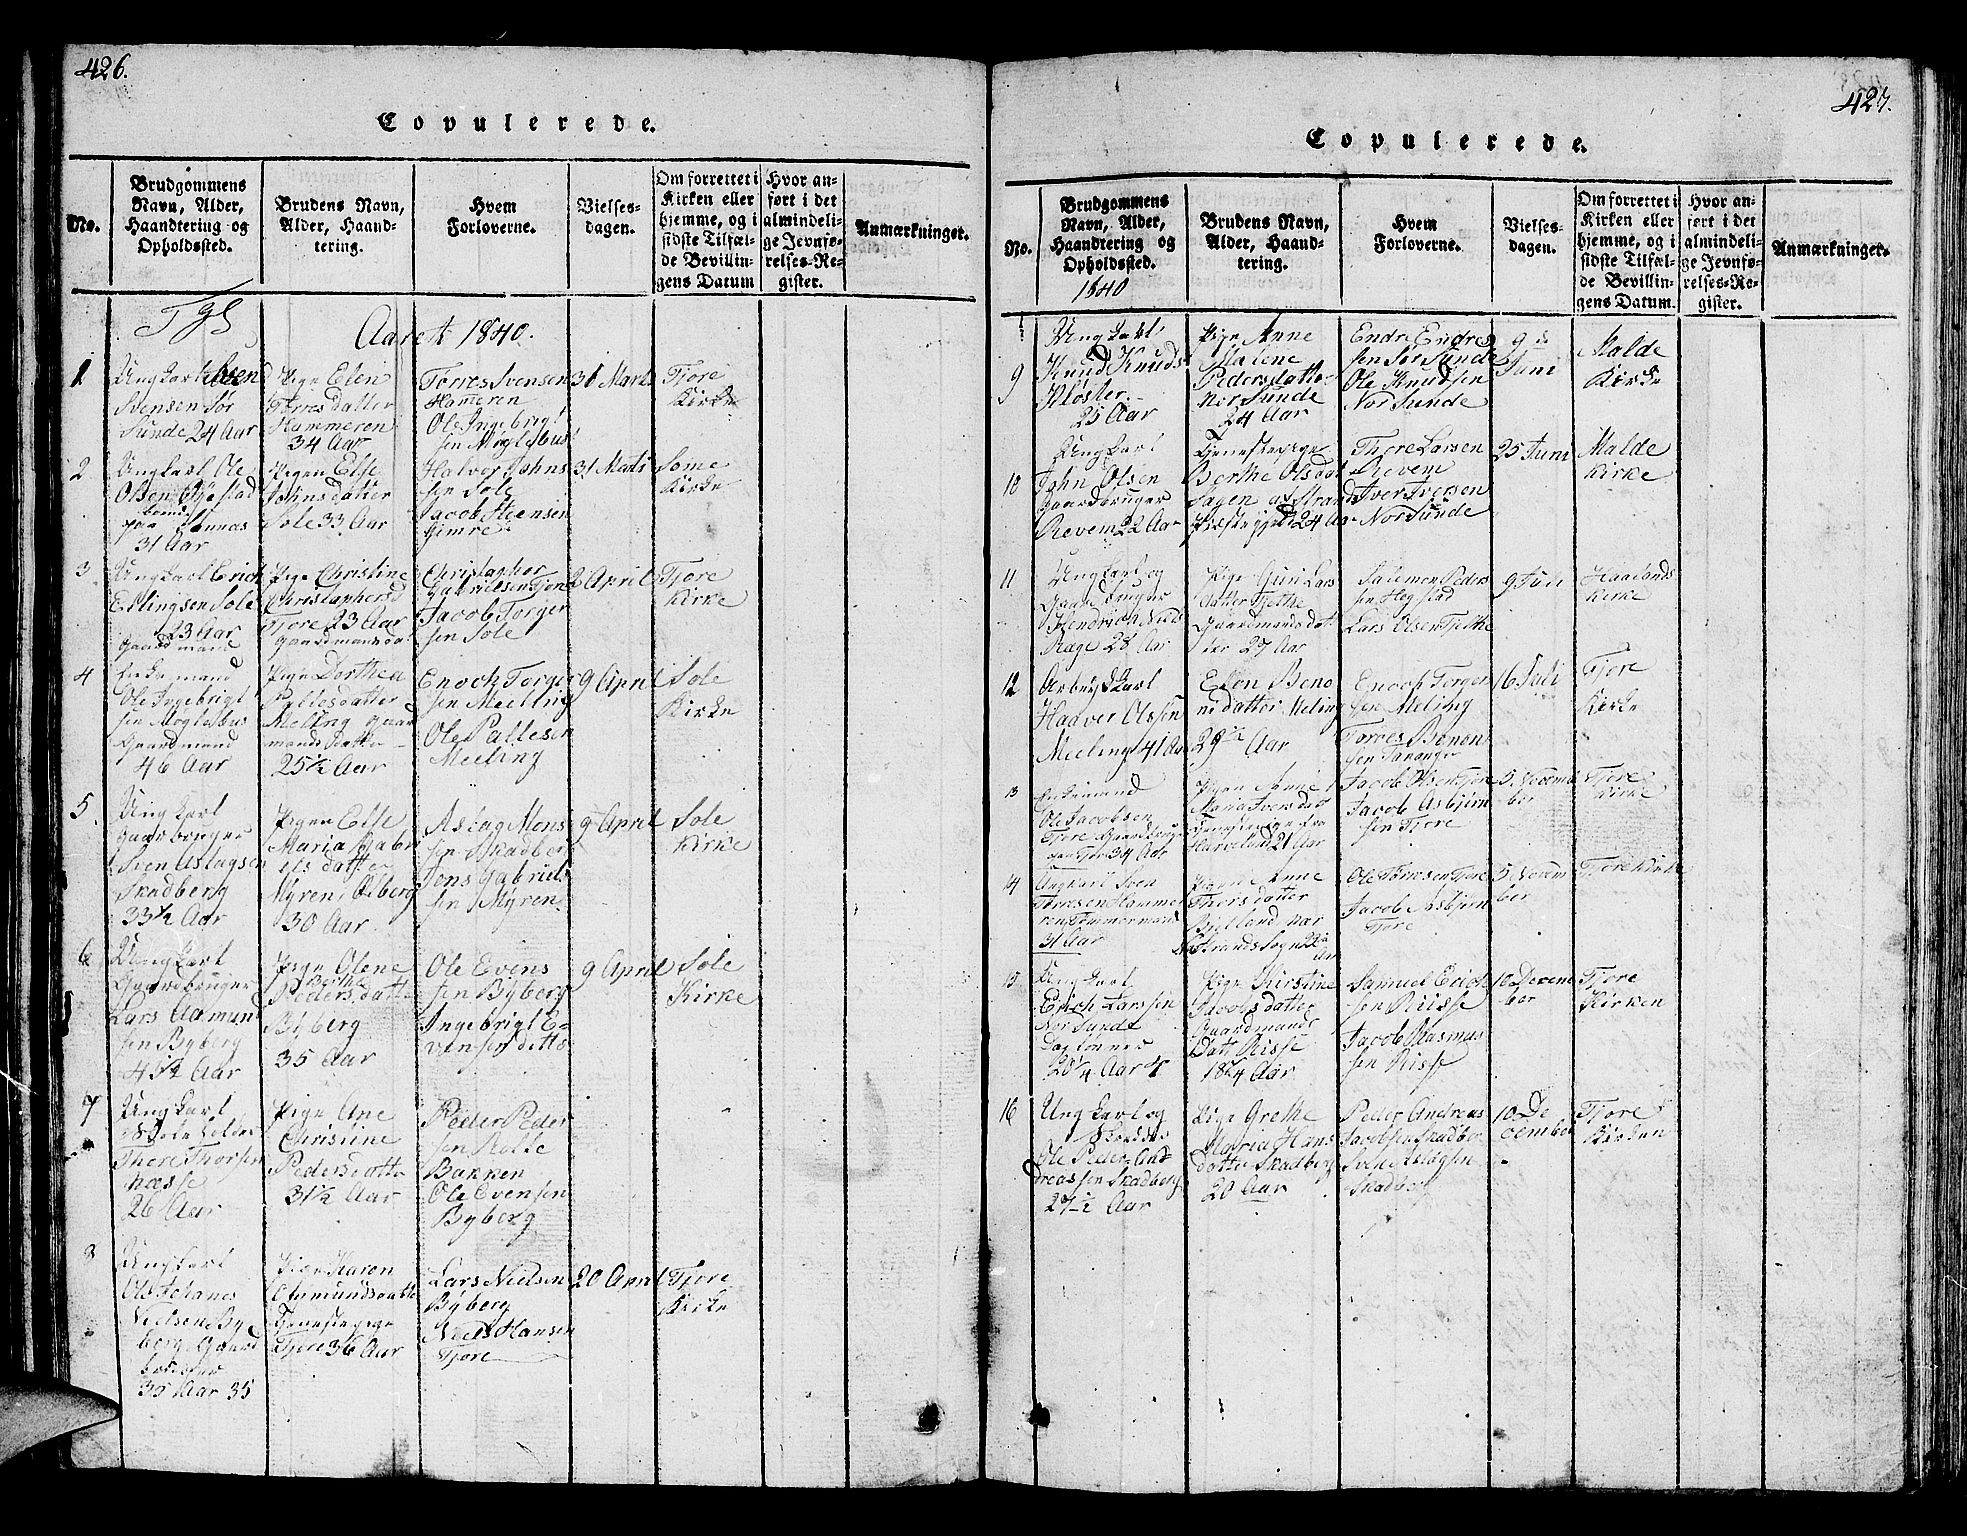 426.
Copulerede.
No.
Brudgommens
Navn, Alder,
Haandtering og
Opholdssted.
Brudens Navn,
Alder, Haand-
tering.
Hvem
Forloverne.
Vielses-
dagen.
Om forrettet i
Kirken eller
hjemme, og i
sidste Tilfæl-
de Bevillin-
gens Datum
Hvor an-
ført i det
almindeli-
ge Jevnfø-
relses-Re-
gister.
Anmærkninger.
Aaret 1840.
1
Ungkarl
Svensen Sør
Sunde 24 Aar
Pige Elen
Torresdatter
Hammeren
34 Aar
Torres Svensen
Hammeren
Ole Ingebrigt
sen Møglebus
31 Marts
Tjore
Kirke
2
Ungkarl Ole
Olsen
paa
31 Aar
Pigen Else
Johnsdatter
Sole 33 Aar
Halvor Johns
sen Sole
Jacob Steensen
Gimre
31 Marts
Some
Kirke
3
Ungkarl Erich
Erlingsen Sole
23 Aar
Gaardmand
Pige Christine
Christophersd
Tjore 23 Aar
Gaardmansdat
Christopher
Gabrielsen Tjore
Jacob Torger
sen Sole
2 April
Tjore
Kirke
4
Enkemand
Ole Ingebrigt
sen Møglebus
Gaardmand
46 Aar
Pige Dorthea
Pallesdatter
Meling Gaar
mands Datter
25½ Aar
Enoch Torger
sen Meeling
Ole Pallesen
Meeling
9 April
Sole
Kirke
5
Ungkarl
Gaarbruger
Sven Aslagsen
Skadberg
33½ Aar
Pigen Else
Maria Gabri
els datter
Myren, Ølberg
30 Aar
Aslag Mons
sen Skadberg
Jens Gabriels
sen Myren
9 April
Sole
Kirke
6
Ungkarl
Gaardbruger
Lars Aamund
sen Byberg
Aar
Pige Olene
Berthe
Pedersdatte
Byberg
35 Aar
Ole Evens
sen Byberg
Ingebrigt E-
vensen ditto
9 April
Sole
Kirke
7
Ungkarl
Thore Thorsen
næsse
26 Aar
Pige Ane
Christine
Pedersdatte
31½ Aar
Peder Peder
sen Rolte
Bakken
Ole Evensen
Byberg
8
Ungkarl
Nielsen By
berg Gaard
35 Aar 35
Pige Karen
Tjenestepige
Tjore 36 Aar
Lars Nielsen
Byberg
Niels Hansen
Tjore
20 April
Tjore
Kirke
427.
Copulerede.
No.
Brudgommens
Navn, Alder,
Haandtering og
Opholdssted.
1840
Brudens Navn,
Alder, Haand-
tering.
Hvem
Forloverne.
Vielses-
dagen.
Om forrettet i
Kirken eller
hjemme, og i
sidste Tilfæl-
de Bevillin-
gens Datum.
Hvor an-
ført i det
almindeli-
ge Jevnfø-
relses-Re-
gister.
Anmærkninger.
9
Ungkarl
Knud Knuds
Kloster
25 Aar
Pige Anne
Malene
Pedersdatter
Nor Sunde
24 Aar
Endre Endre
sen Sør Sunde
Ole Knudsen
Nor Sunde
9 de
Juni
Malde
Kirke
10
Ungkarl
John Olsen
Gaardbruger
Revem 22 Aar
Tjenestepige
Berthe Olsdat
24 Aar
Thore Larsen
Revem
Iver Iversen
Nor Sunde
25 Juni
Malde
Kirke
11
Ungkarl og
Gaardbruger
Hendrich Niels
Ræge 28 Aar
Pige Guri Lars
datter Tjelthe
Gaardmandsdat
ter 27 Aar
Salemon Peders
sen Hogstad
Lars Olsen Tjelthe
9 Juli
Haalands
Kirke
12
Arbeidskarl
Haaver Olssen
Meeling 41 Aar
Elen Beno
nidatter Meling
29½ Aar
Enoch Torger
sen Meling
Torres Benon
sen Tananger
16 Juli
Tjore
Kirke
13
Enkemand
Ole Jacobsen
Tjore Gaardbruge
paa Tjore 34 Aar
Pigen Anne
Maria Iversdatt
21 Aar
Jacob Olsen Tjore
Jacob Asbjørn
sen Tjore
5 Novem
ber
Tjore
Kirke
14
Ungkarl Sven
Thoresen Hamme
ren Tømmermand
31 Aar
Pigen Anne
Thorsdatter
Bjelland nær
Strands Sogn 22½
Aar
Ole Tørresen Tjore
Jacob Asbjørn
Tjore
5 Novem
ber
Tjore Kirke
15
Ungkarl
Erich Larssen
Nor Sunde
Daglønner
Pige Kirstine
Jacobsdatter
Gaardmands
Datt Risse
18¼ Aar
Samuel Erich
sen Riisse
Jacob Rasmus
sen Risse
10 Decem
ber
Tjore
Kirken
16
Ungkarl og
Ole Peder And
dreassen Skadberg
27½ Aar
Pige Grethe
Maria Hans
datter Skadberg
20 Aar
Peder Andreas
Jacobsen Skadber
Sven Aslagsen
Skadberg
10 De
cember
Tjore
Kirken